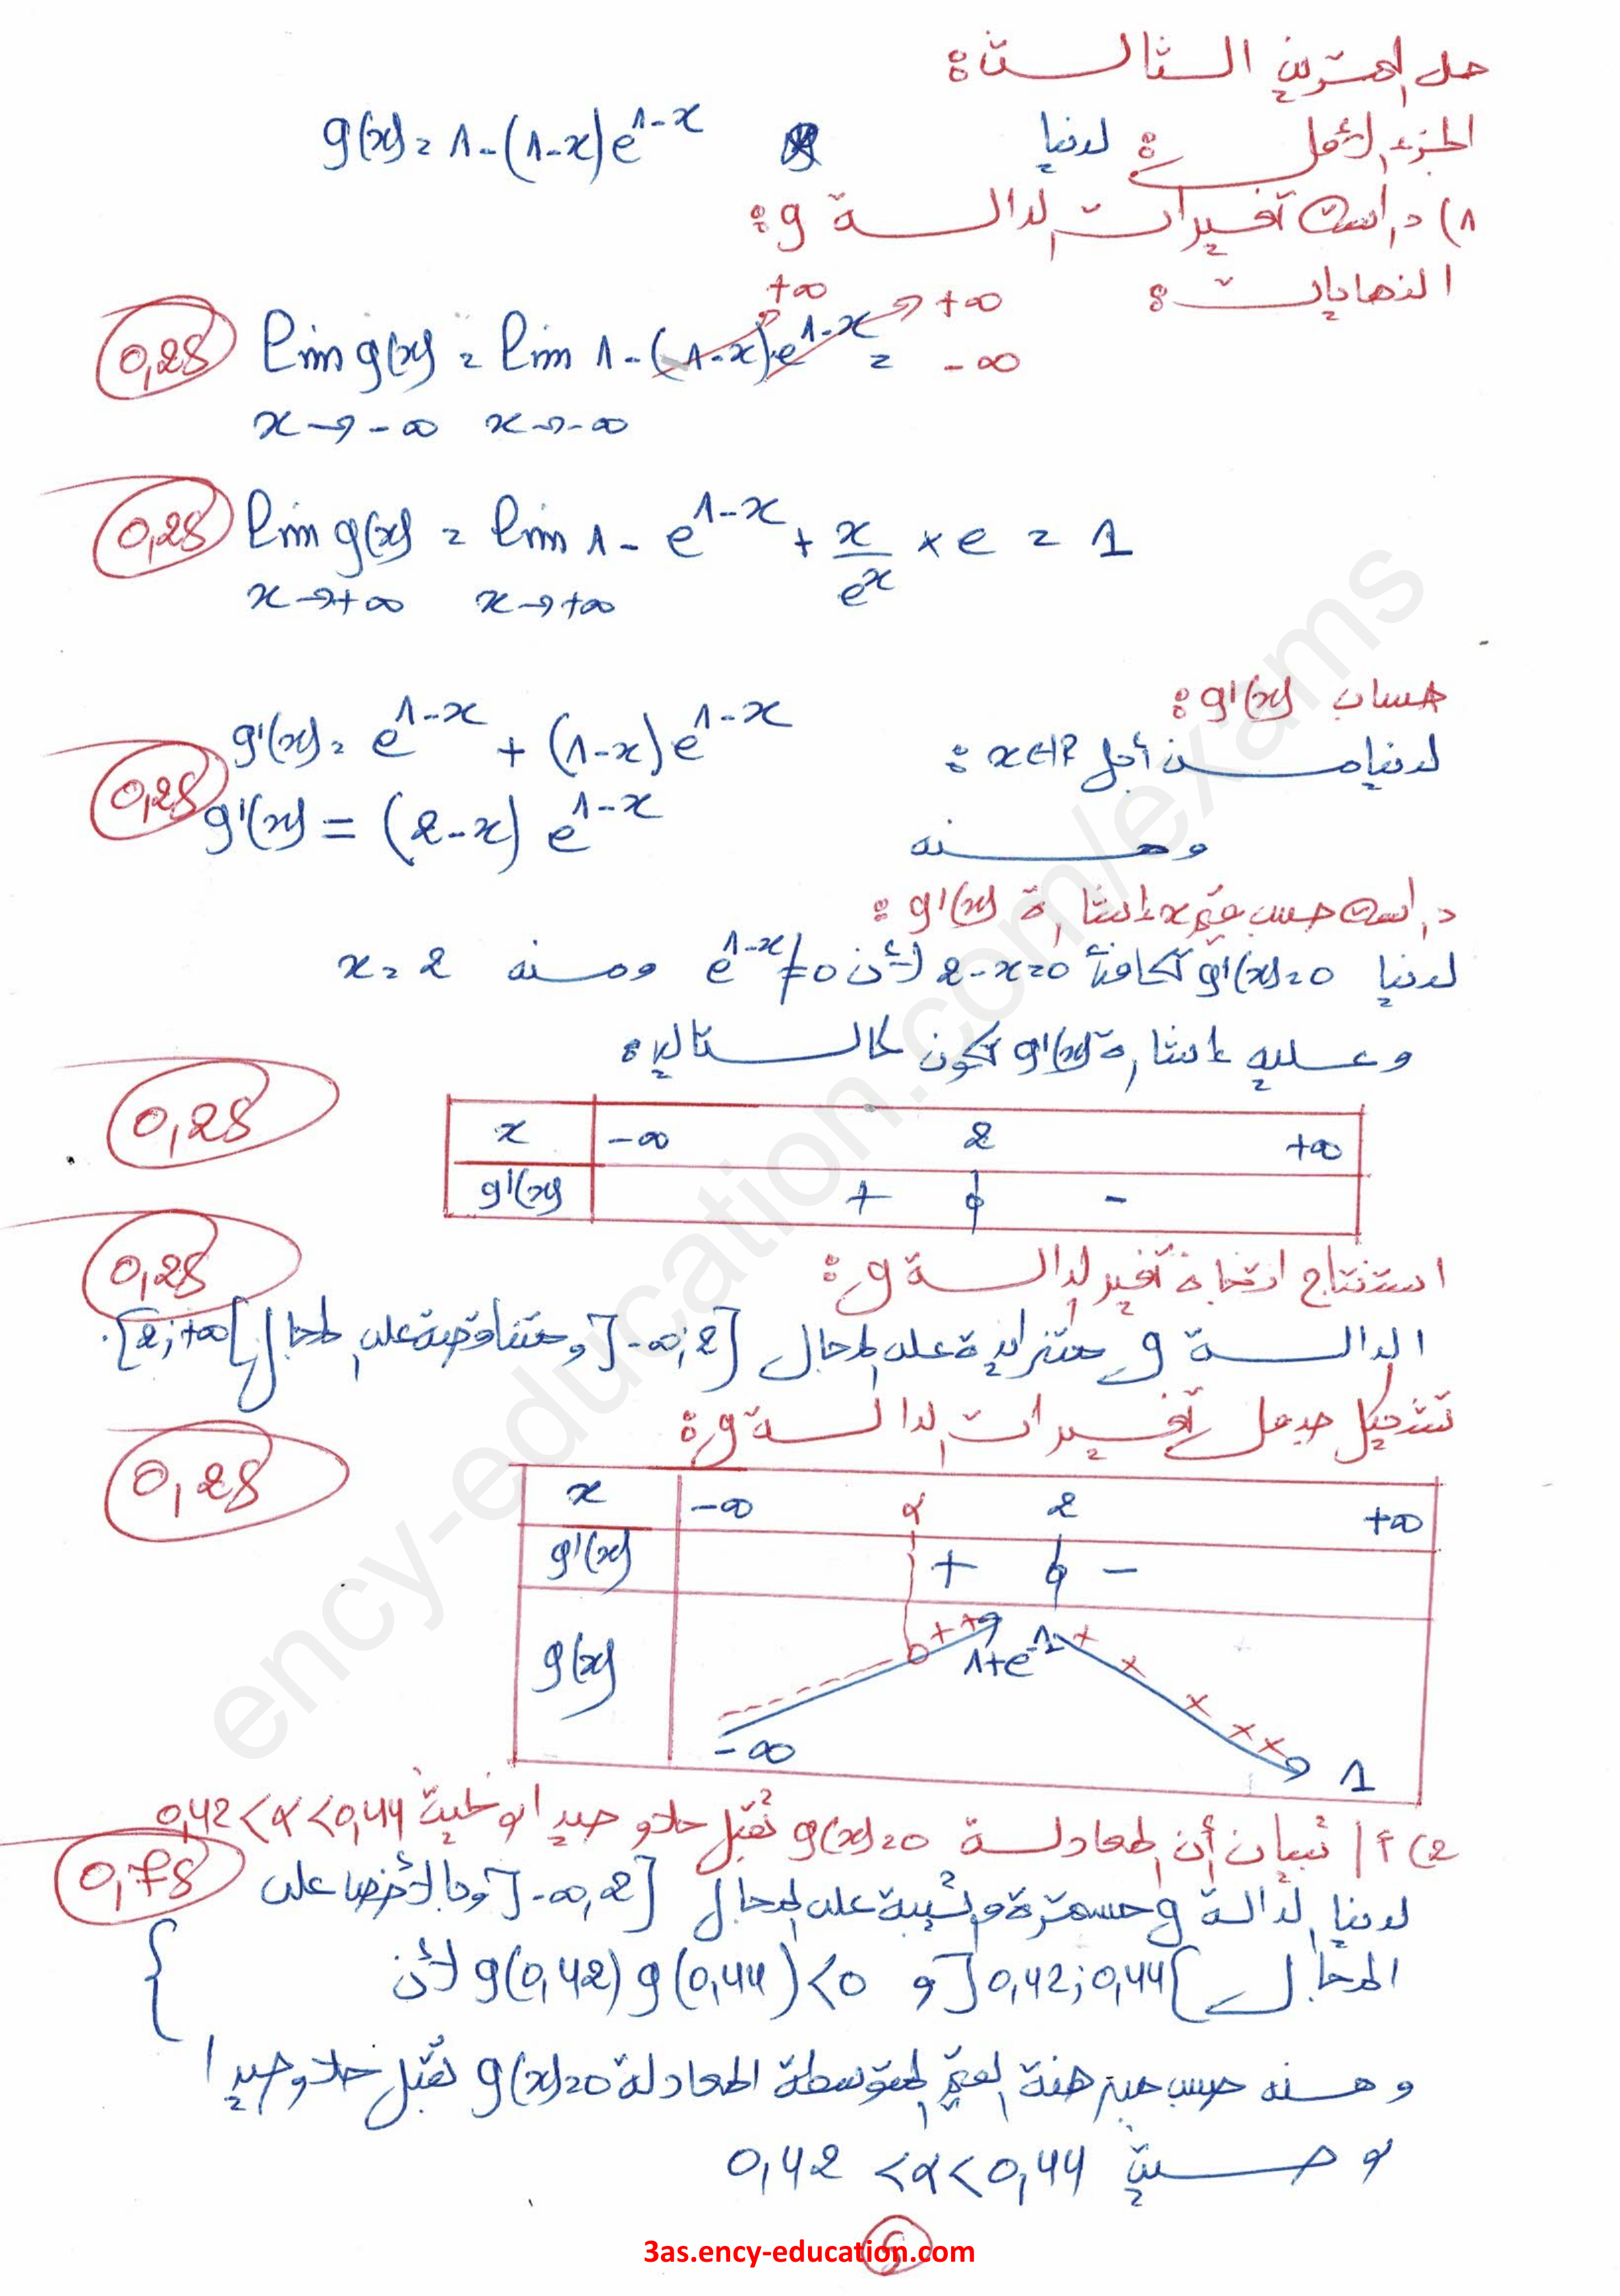 حل التمرين الثالث:
الجزء الأول: لدينا g(x) = 1-(1-x)e^{1-x}
1) دراسة تغيرات الدالة g:
النهايات:
0,25 lim g(x) = lim 1-(1-x)e^{1-x} = -∞
+∞ +∞
x→-∞ x→-∞
0,25 lim g(x) = lim 1 - e^{1-x} + x/e^x × e = 1
x→+∞ x→+∞
حساب g'(x):
لدينا من أجل x∈ℝ: g'(x) = e^{1-x} + (1-x)e^{1-x}
ومنه g'(x) = (2-x) e^{1-x} 0,25
دراسة حسب قيم x إشارة g'(x):
لدينا g'(x)=0 تكافئ 2-x=0 لأن e^{1-x}≠0 ومنه x=2
وعليه إشارة g'(x) تكون كالتالي:
0,25
x -∞ 2 +∞
g'(x) + 0 -
استنتاج اتجاه تغير الدالة g:
0,25
الدالة g متزايدة على المجال ]-∞;2] ومتناقصة على المجال [2;+∞[.
تشكيل جدول تغيرات الدالة g:
0,25
x -∞ α 2 +∞
g'(x) + 0 -
g(x) -∞ 0 1+e^{-1} 1
2) أ/ تبيان أن المعادلة g(x)=0 تقبل حلا وحيدا α بحيث 0,42<α<0,44
0,75
لدينا الدالة g مستمرة ورتيبة على المجال ]-∞,2] وبالأخص على
المجال ]0,42;0,44[ و g(0,42)g(0,44)<0 لأن {
ومنه حسب مبرهنة القيم المتوسطة المعادلة g(x)=0 تقبل حلا وحيدا
α حيث 0,42 <α<0,44
5
3as.ency-education.com
ency-education.com/exams